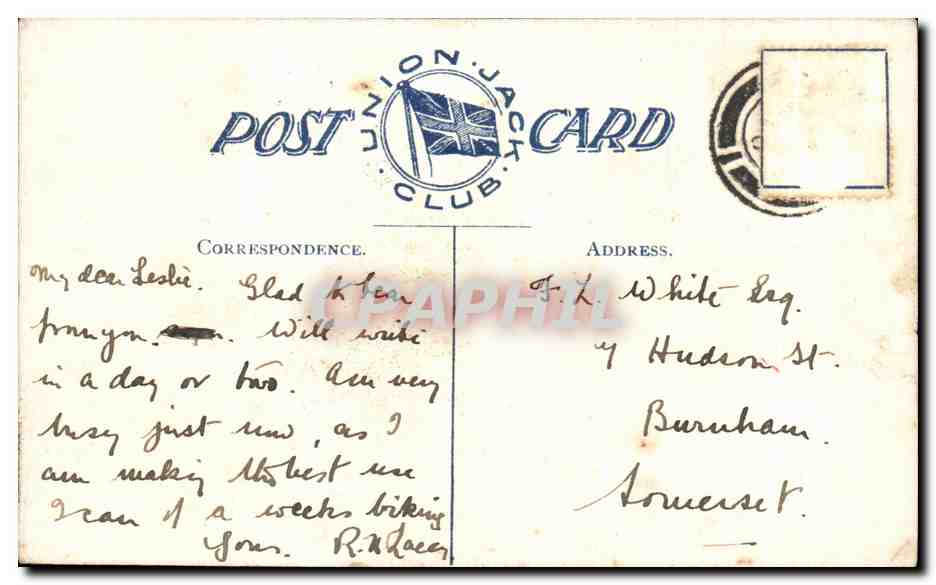 UNION · JACK · CLUB ·
POST CARD
CORRESPONDENCE.
My dear Leslie. Glad to hear
from you. Will write
in a day or two. Am very
busy just now, as I
am making the best use
I can of a weeks biking
Yours. R. N.
ADDRESS.
F. L. White Esq.
Hudson St.
Burnham.
Somerset.
CPAPHIL